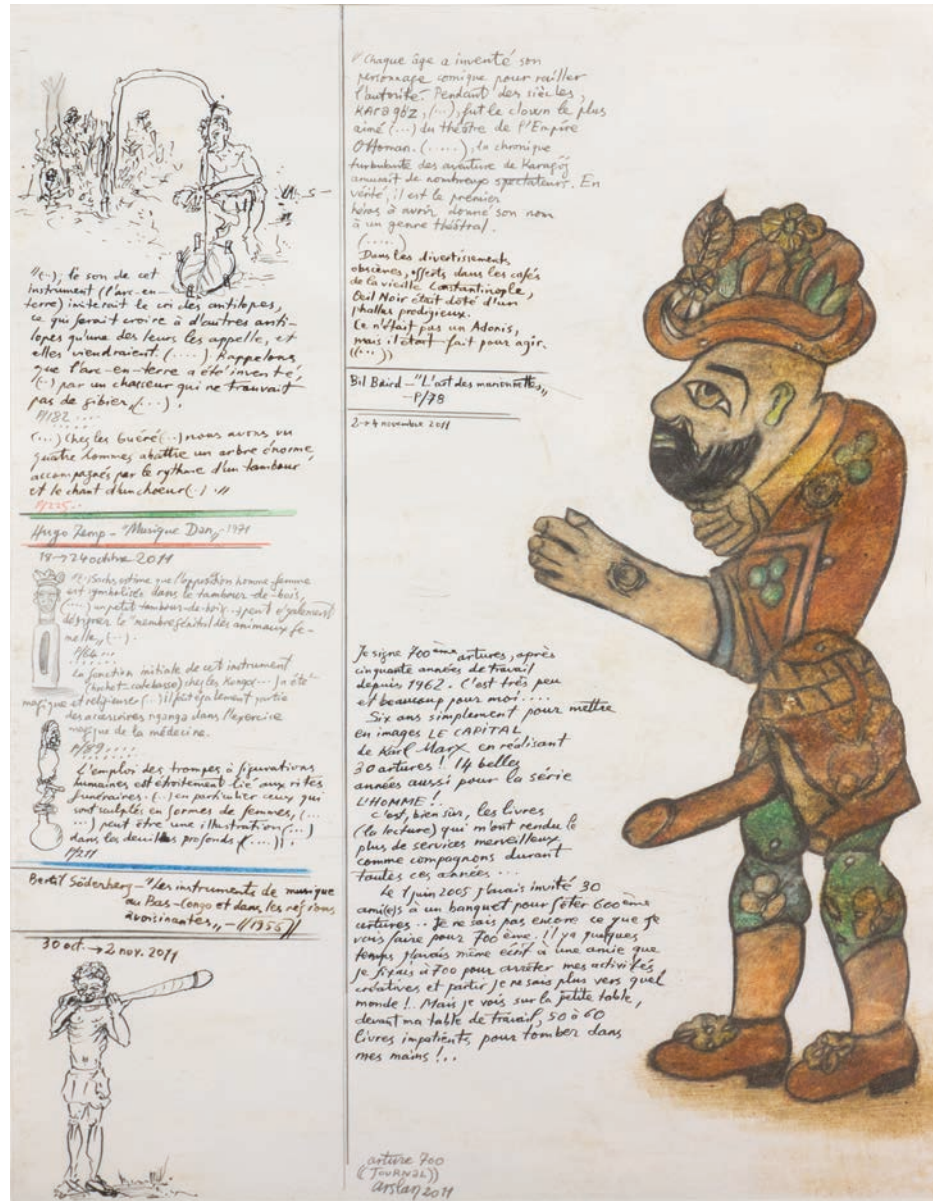 "(..); le son de cet
instrument (l'arc-en-
terre) imiterait le cri des antilopes,
ce qui ferait croire à d'autres anti-
lopes qu'une des leurs les appelle, et
elles viendraient. (....) Rappelons
que l'arc-en-terre a été inventé
(..) par un chasseur qui ne trouvait
pas de gibier,, (...).
P/182 ....
(...) Chez les Guéré (..) nous avons vu
quatre hommes abattre un arbre énorme,
accompagnés par le rythme d'un tambour
et le chant d'un choeur (..) .,,
P/225..
Hugo Zemp - "Musique Dan,, - 1971
18 → 24 octobre 2011
Sachs estime que l'opposition homme-femme
est symbolisée dans le tambour-de-bois,
(....) un petit tambour-de-bois ... peut également
désigner le "membre génital des animaux fe-
melle,, (..).
P/64 ....
La fonction initiale de cet instrument
(hochet-calebasse) chez les Kongo ... a été
magique et religieuse (..) il fait également partie
des accessoires nganga dans l'exercice
magique de la médecine.
P/89 .....
L'emploi des trompes à figurations
humaines est étroitement lié aux rites
funéraires. (..) en particulier ceux qui
sont sculptés en formes de femmes, (...
...) peut être une illustration (...)
dans les deuils profonds (....)).
P/211
Bertil Söderberg - "Les instruments de musique
au Bas-Congo et dans les régions
avoisinantes,, - (1956)
30 oct. → 2 nov. 2011
"Chaque âge a inventé son
personnage comique pour railler
l'autorité. Pendant des siècles,
KARAgöz, (...), fut le clown le plus
aimé (...) du théâtre de l'Empire
Ottoman. (.....), la chronique
turbulente des aventure de Karagöz
amusait de nombreux spectateurs. En
vérité, il est le premier
héros à avoir donné son nom
à un genre théâtral.
(.....)
Dans les divertissements
obscènes, offerts dans les cafés
de la vieille Constantinople,
Oeil Noir était doté d'un
phallus prodigieux.
Ce n'était pas un Adonis,
mais il était fait pour agir.
((...))
Bil Baird - "L'art des marionnettes,,
- P/78
2 → 4 novembre 2011
Je signe 700ème artures, après
cinquante années de travail
depuis 1962. C'est très peu
et beaucoup pour moi ....
Six ans simplement pour mettre
en images LE CAPITAL
de Karl Marx en réalisant
30 artures !. 14 belles
années aussi pour la série
L'HOMME !.
C'est, bien sûr, les livres
(la lecture) qui m'ont rendu le
plus de services merveilleux
comme compagnons durant
toutes ces années ...
Le 1 juin 2005 j'avais invité 30
ami(e)s à un banquet pour fêter 600ème
artures .. Je ne sais pas encore ce que je
vais faire pour 700ème. Il y a quelques
temps j'avais même écrit à une amie que
je fixais à 700 pour arrêter mes activités
créatives et partir je ne sais plus vers quel
monde !.. Mais je vois sur la petite table,
devant ma table de travail, 50 à 60
livres impatients pour tomber dans
mes mains !..
arture 700
((JOURNAL))
arslan 2011